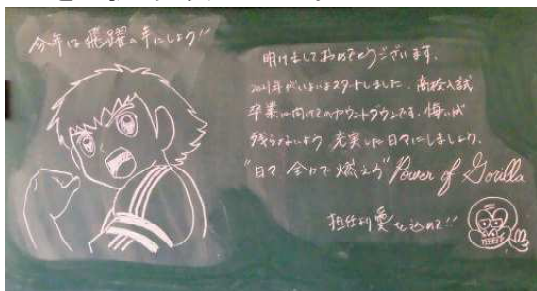 今年は飛躍の年にしよう!!
明けましておめでとうございます。
2021年がいよいよスタートしました。高校入試
卒業に向けてのカウントダウンです。悔いが
残らないよう 充実した日々にしましょう。
"日々 全力で 燃えろ" Power of Gorilla
担任より愛を込めて!!